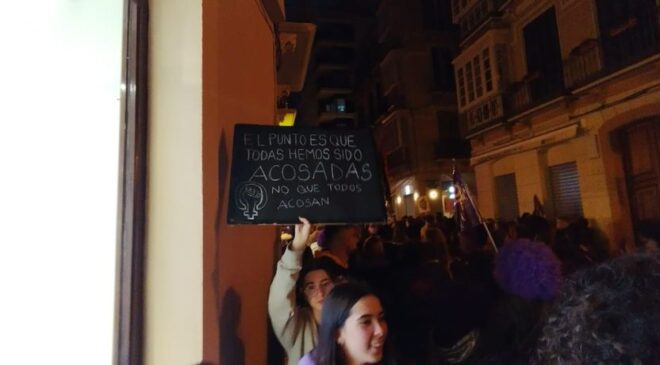 EL PUNTO ES QUE
TODAS HEMOS SIDO
ACOSADAS
NO QUE TODOS
ACOSAN